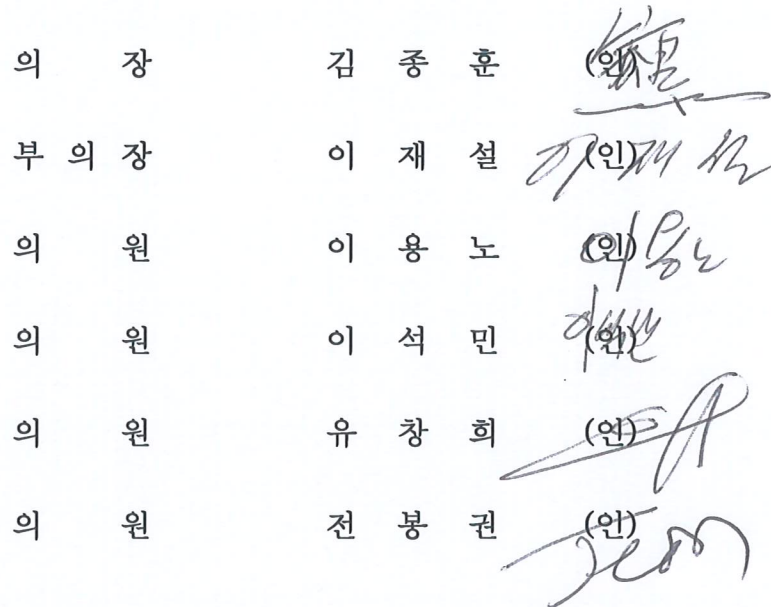 의 장 김 종 훈 (인)
부 의 장 이 재 설 (인) 이재설
의 원 이 용 노 (인) 이용노
의 원 이 석 민 (인) 이석민
의 원 유 창 희 (인)
의 원 전 봉 권 (인)